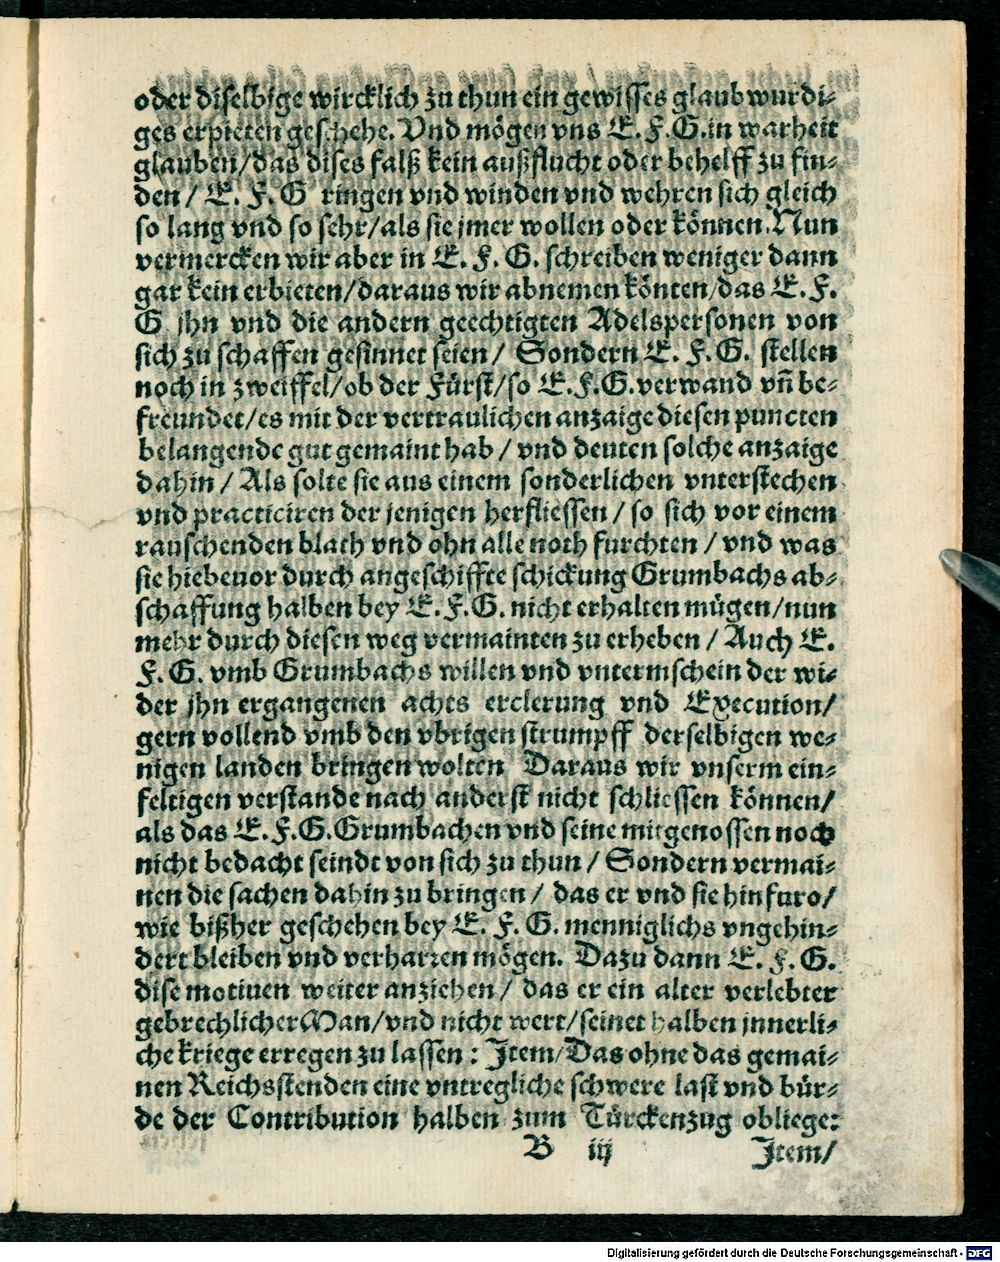 oder diselbige wircklich zu thun ein gewisses glaubwurdi-
ges erpieten geschehe. Vnd mögen vns E. F. G. in warheit
glauben/das dises falß kein außflucht oder behelff zu fin-
den / E. F. G ringen vnd winden vnd wehren sich gleich
so lang vnd so sehr/als sie jmer wollen oder können. Nun
vermercken wir aber in E. F. G. schreiben weniger dann
gar kein erbieten/daraus wir abnemen könten/das E. F.
G jhn vnd die andern geechtigten Adelspersonen von
sich zu schaffen gesinnet seien / Sondern E. F. G. stellen
noch in zweiffel/ob der Fürst/so E. F. G. verwand vñ be-
freundet/es mit der vertraulichen anzaige diesen puncten
belangende gut gemaint hab / vnd deuten solche anzaige
dahin / Als solte sie aus einem sonderlichen vnterstechen
vnd practiciren der jenigen herfliessen / so sich vor einem
rauschenden blath vnd ohn alle noth furchten / vnd was
sie hiebeuor durch angeschiffte schickung Grumbachs ab-
schaffung halben bey E. F. G. nicht erhalten mügen/nun
mehr durch diesen weg vermainten zu erheben / Auch E.
F. G. vmb Grumbachs willen vnd vnterm schein der wi-
der jhn ergangenen achts erclerung vnd Execution/
gern vollend vmb den vbrigen strumpff derselbigen we-
nigen landen bringen wolten Daraus wir vnserm ein-
feltigen verstande nach anderst nicht schliessen können/
als das E. F. G. Grumbachen vnd seine mitgenossen noch
nicht bedacht seindt von sich zu thun / Sondern vermai-
nen die sachen dahin zu bringen / das er vnd sie hinfuro/
wie bißher geschehen bey E. F. G. menniglichs vngehin-
dert bleiben vnd verharren mögen. Dazu dann E. F. G.
dise motiuen weiter anziehen / das er ein alter verlebter
gebrechlicher Man/vnd nicht wert/seinet halben jnnerli-
che kriege erregen zu lassen : Jtem/Das ohne das gemai-
nen Reichsstenden eine vntregliche schwere last vnd bür-
de der Contribution halben zum Türckenzug obliege:
B iij Jtem/
Digitalisierung gefördert durch die Deutsche Forschungsgemeinschaft - DFG